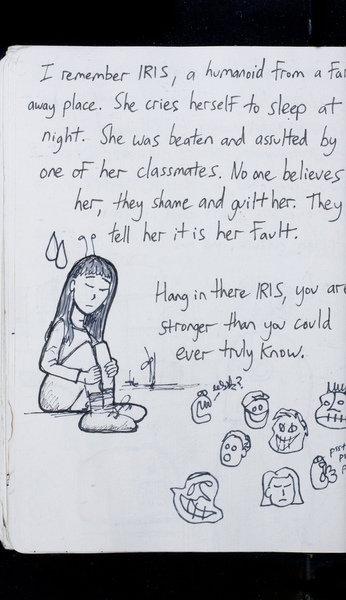 I remember IRIS, a humanoid from a far
away place. She cries herself to sleep at
night. She was beaten and assulted by
one of her classmates. No one believes
her, they shame and guilt her. They
tell her it is her fault.
Hang in there IRIS, you are
stronger than you could
ever truly know.
psst